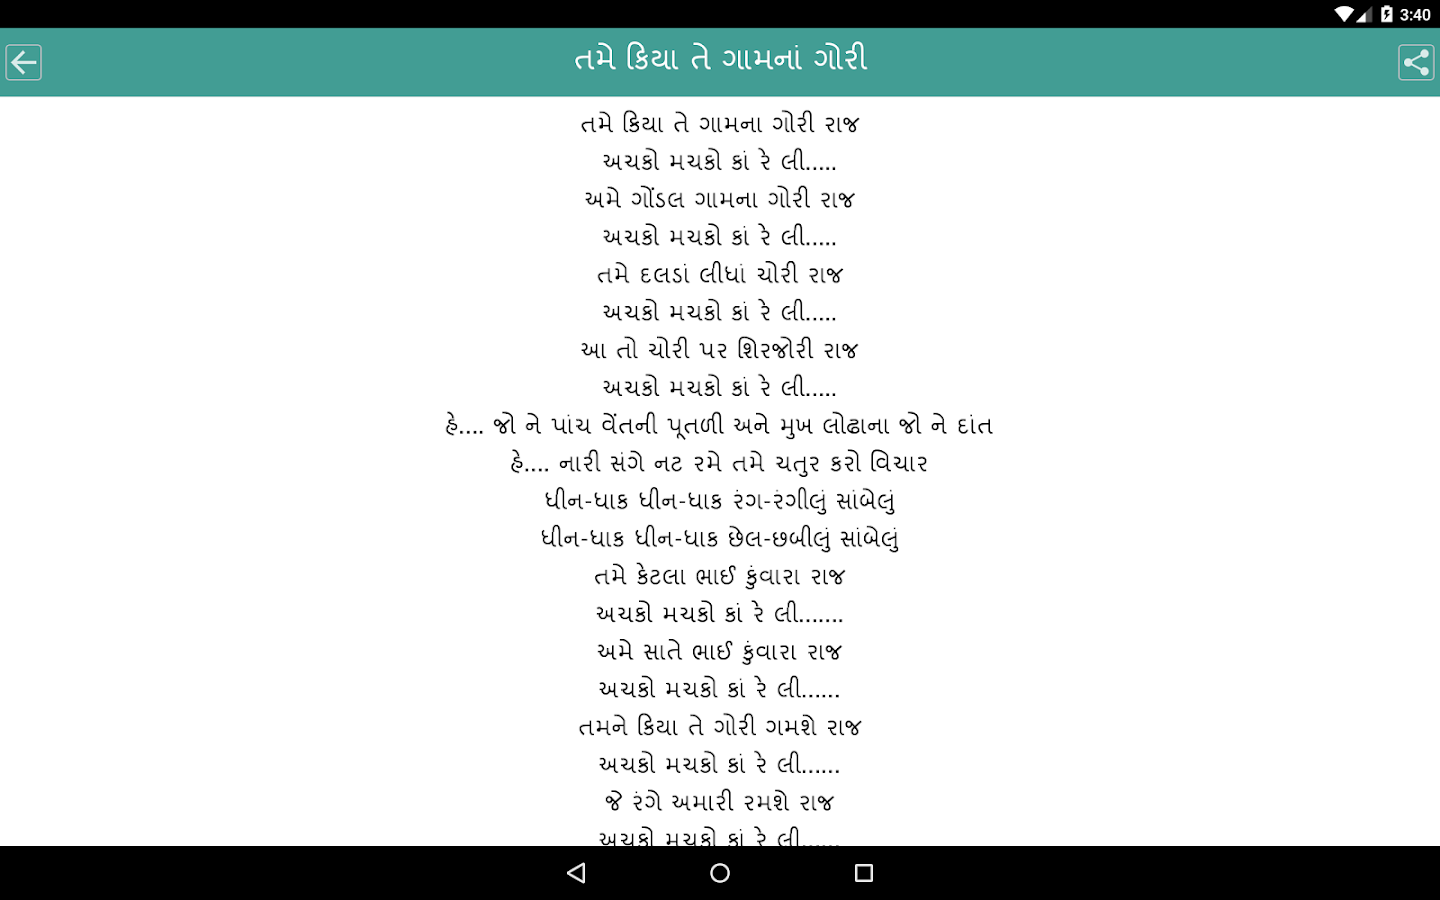 3:40
તમે કિયા તે ગામનાં ગોરી
તમે કિયા તે ગામના ગોરી રાજ
અચકો મચકો કાં રે લી.....
અમે ગોંડલ ગામના ગોરી રાજ
અચકો મચકો કાં રે લી.....
તમે દલડાં લીધાં ચોરી રાજ
અચકો મચકો કાં રે લી.....
આ તો ચોરી પર શિરજોરી રાજ
અચકો મચકો કાં રે લી.....
હે.... જો ને પાંચ વેંતની પૂતળી અને મુખ લોઢાના જો ને દાંત
હે.... નારી સંગે નટ રમે તમે ચતુર કરો વિચાર
ધીન-ધાક ધીન-ધાક રંગ-રંગીલું સાંબેલું
ધીન-ધાક ધીન-ધાક છેલ-છબીલું સાંબેલું
તમે કેટલા ભાઈ કુંવારા રાજ
અચકો મચકો કાં રે લી.......
અમે સાતે ભાઈ કુંવારા રાજ
અચકો મચકો કાં રે લી......
તમને કિયા તે ગોરી ગમશે રાજ
અચકો મચકો કાં રે લી......
જે રંગે અમારી રમશે રાજ
અચકો મચકો કાં રે લી......